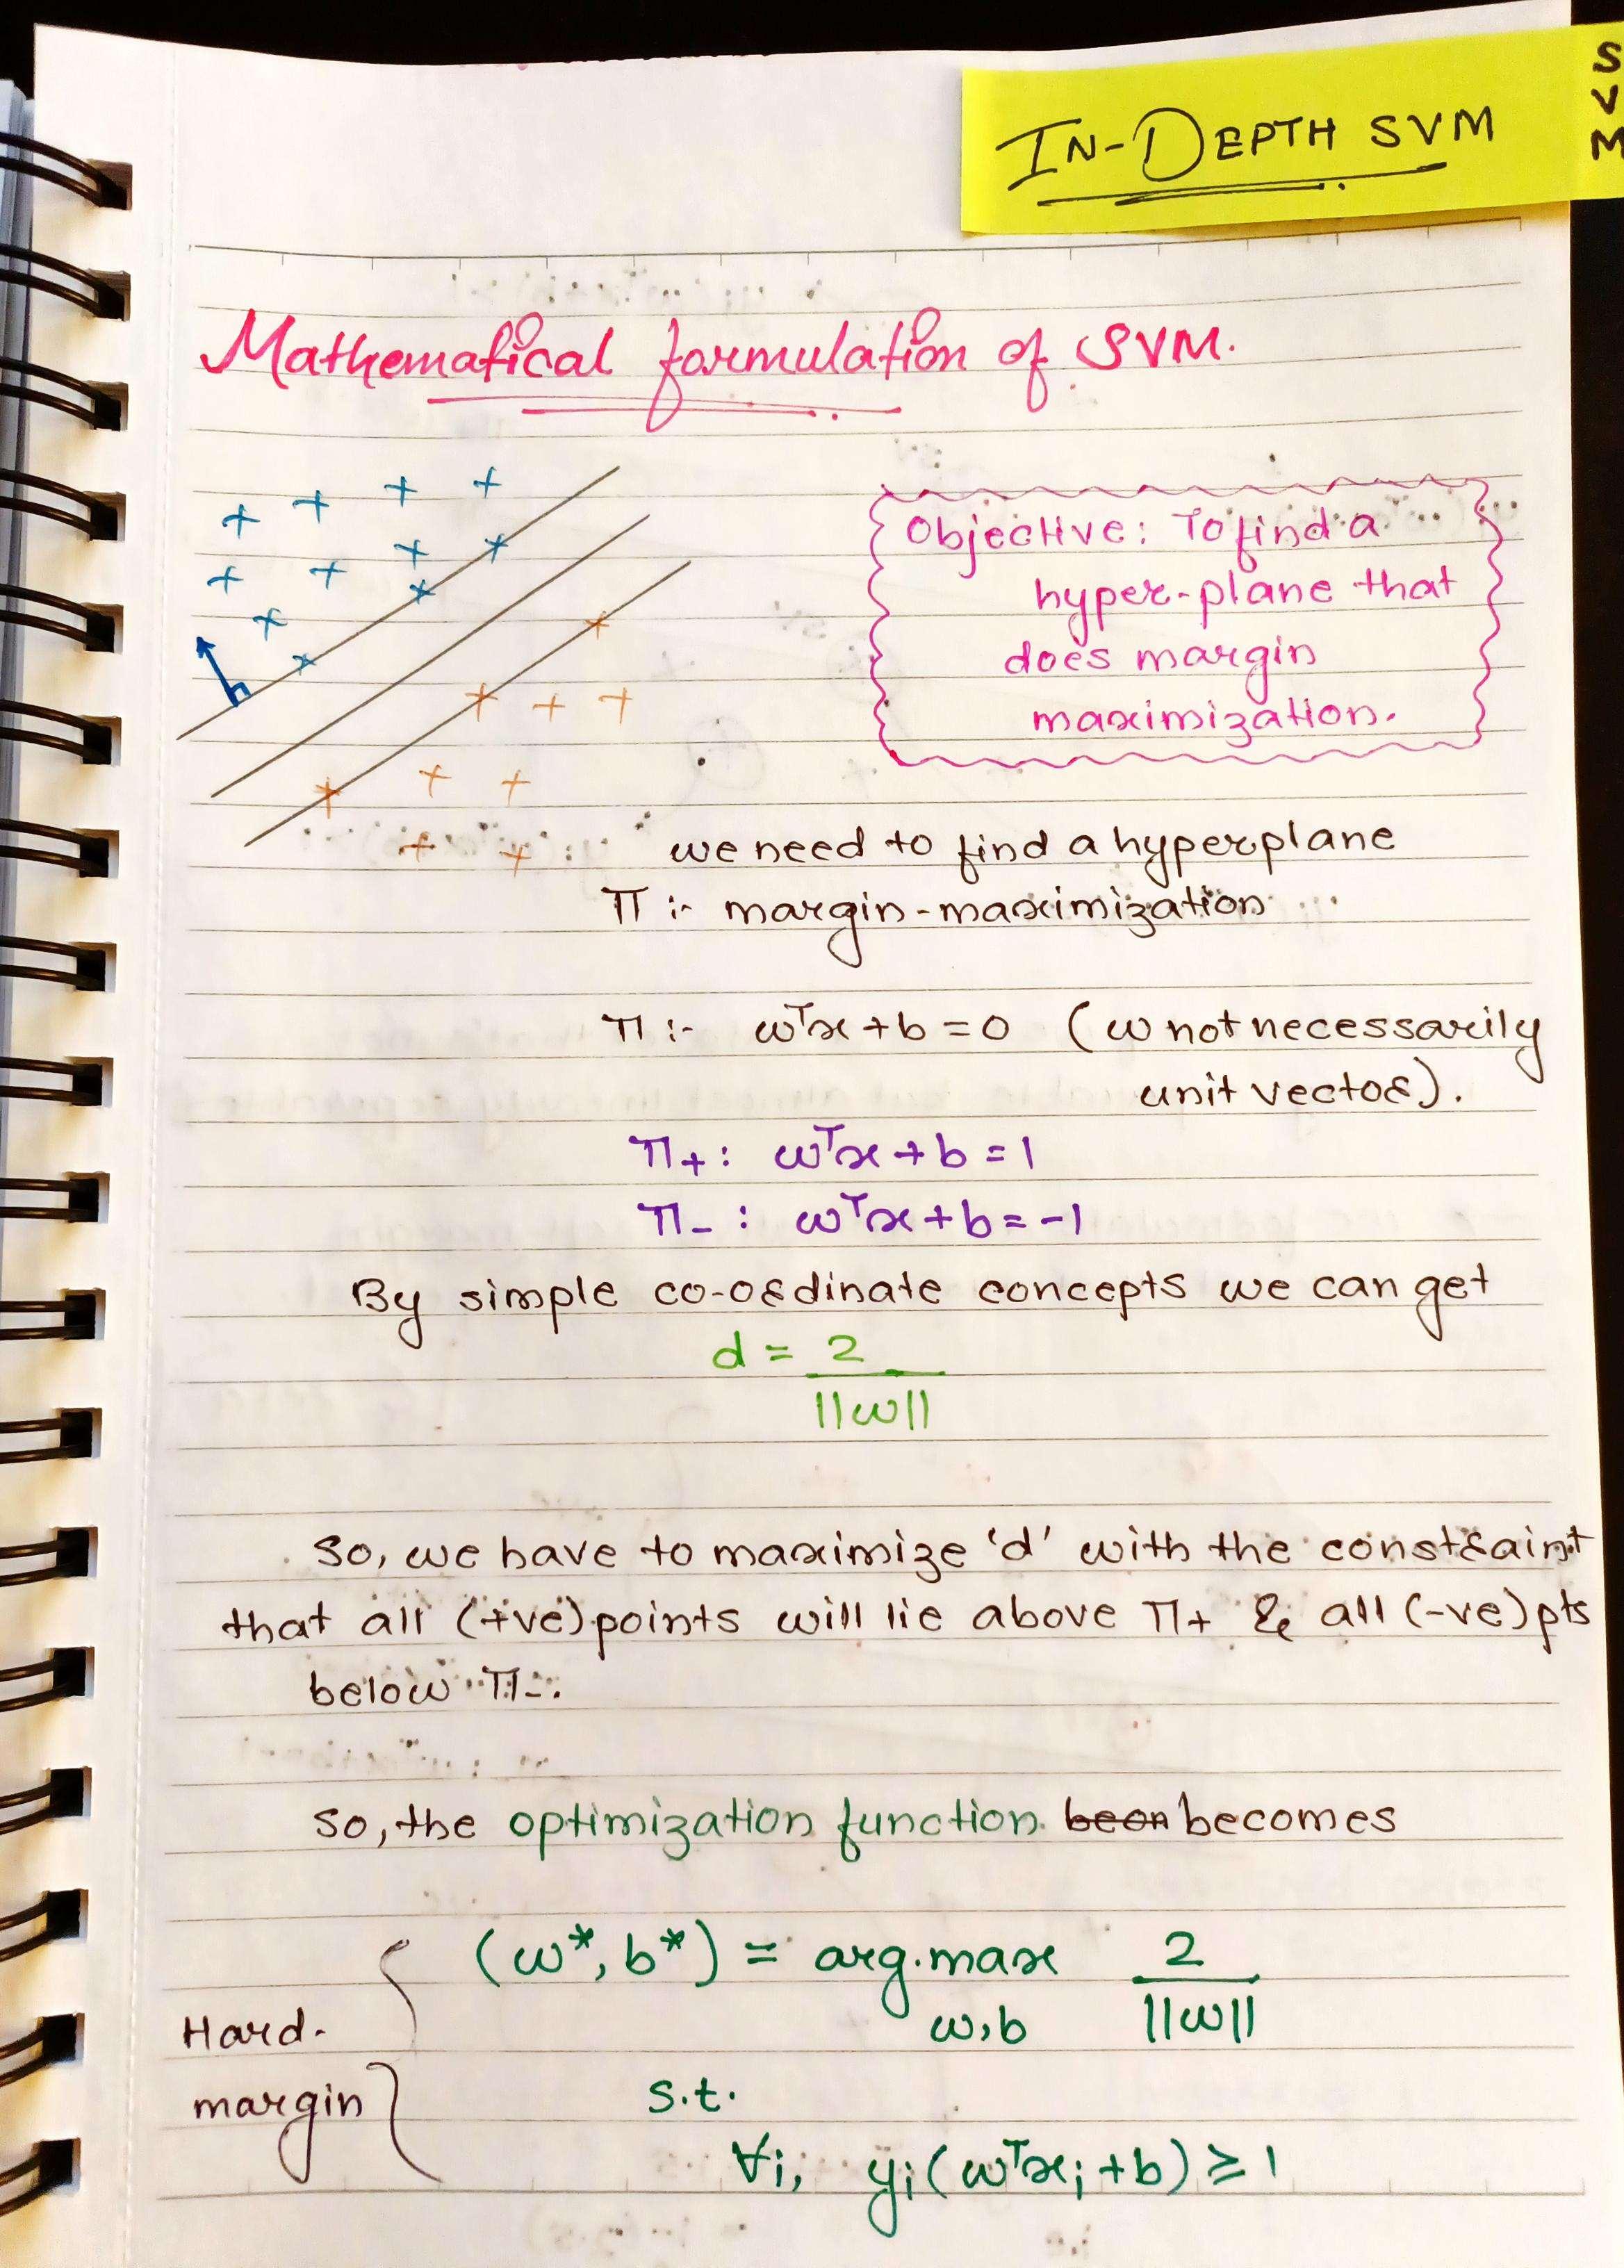 IN-DEPTH SVM
S
V
M
Mathematical formulation of SVM.
Objective: To find a
hyper-plane that
does margin
maximization.
we need to find a hyperplane
π :- margin-maximization
π :- wᵀx + b = 0 (w not necessarily
unit vector).
π+ : wᵀx + b = 1
π- : wᵀx + b = -1
By simple co-ordinate concepts we can get
d = 2
||w||
So, we have to maximize 'd' with the constraint
that all (+ve) points will lie above π+ & all (-ve) pts
below π-.
So, the optimization function becomes
(w*, b*) = arg.max 2
w,b ||w||
Hard-
margin
s.t.
∀i, yi(wᵀxi + b) ≥ 1